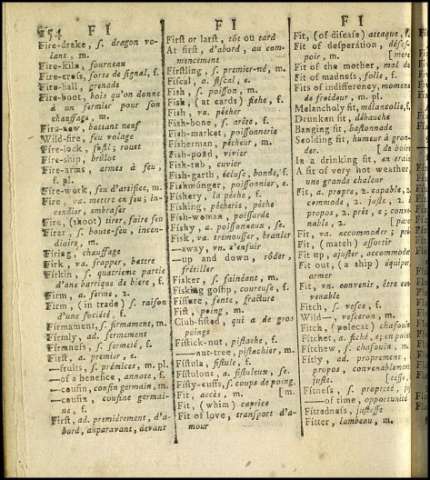 254 F I
Fire-drake, s. dragon vo-
lant, m.
Fire-kiln, fourneau
Fire-cross, sorte de signal, f.
Fire-ball, grenade
Fire-boot, bois qu'on donne
à un fermier pour son
chauffage, m.
battant neuf
Wild-fire, feu volage
Fire-lock, fusil; rouet
Fire-ship, brûlot
Fire-arms, armes à feu,
f. pl.
Fire-work, feu d'artifice, m.
Fire, va. mettre en feu; in-
cendier, embraser
Fire, (shoot) tirer, faire feu
Firer, s. boute-feu, incen-
diaire, m.
Firing, chauffage
Firk, va. frapper, battre
Firkin, s. quatrieme partie
d'une barrique de biere, f.
Firm, a. ferme, 2.
Firm, (in trade) s. raison
d'une société, f.
Firmament, s. firmament, m.
Firmly, ad. fermement
Firmness, s. fermeté, f.
First, a. premier, e.
—fruits, s. prémices, m. pl.
—of a benefice, annate, f.
—cousin, cousin germain, m.
—cousin, cousine germai-
ne, f.
First, ad. premiérement, d'a-
bord, auparavant, devant
F I
First or last, tôt ou tard
At first, d'abord, au com-
mencement
Firstling, s. premier-né, m.
Fiscal, a. fiscal, e.
Fish, s. poisson, m.
Fish, (at cards) fiche, f.
Fish, va. pêcher
Fish-bone, s. arête, f.
Fish-market, poissonnerie
Fisherman, pêcheur, m.
Fish-pond, vivier
Fish-tub, cuvier
Fish-garth, écluse, bonde, f.
Fishmonger, poissonnier, e.
Fishery, la pêche, f.
Fishing, pêcherie, pêche
Fish-woman, poissarde
Fishy, a. poissonneux, se.
Fisk, va. trémousser, branler
—away, vn. s'enfuir
—up and down, rôder,
frétiller
Fisker, s. fainéant, m.
Fisking gossip, coureuse, f.
Fissure, fente, fracture
Fist, poing, m.
Club-fisted, qui a de gros
poings
Fistick-nut, pistache, f.
—nut-tree, pistachier, m.
Fistula, fistule, f.
Fistulous, a. fistuleux, se.
Fisty-cuffs, s. coups de poing.
Fit, accès, m. [pl.
Fit, (whim) caprice
Fit of love, transport d'a-
mour
F I
Fit, (of disease) attaque, f.
Fit of desperation, déses-
poir, m.
Fit of the mother, mal de
Fit of madness, folie, f.
Fits of indifferency, momens
de froideur, m. pl.
Melancholy fit, mélancolie, f.
Drunken fit, débauche
Banging fit, bastonnade
Scolding fit, humeur à gron-
der, m.
In a drinking fit, en train
A fit of very hot weather,
une grande chaleur
Fit, a. propre, 2. capable, 2.
commode, 2. juste, 2. à
propos, 2. prêt, e; conve-
nable, 2.
Fit, va. accommoder;
Fit, (match) assortir
Fit up, ajuster, accommoder
Fit out, (a ship) équiper,
armer
Fit, vn. convenir, être con-
venable
Fitch, s. vesce, f.
Wild—, vesceron, m.
Fitch, (polecat)
Fitchet, a. fiché, e;
Fitchew, s. chafouin, m.
Fitly, ad. proprement, à
propos, convenablement,
juste.
Fitness, s. propreté,
—of time, opportunité
Fittedness, justesse
Fitter, lambeau, m.